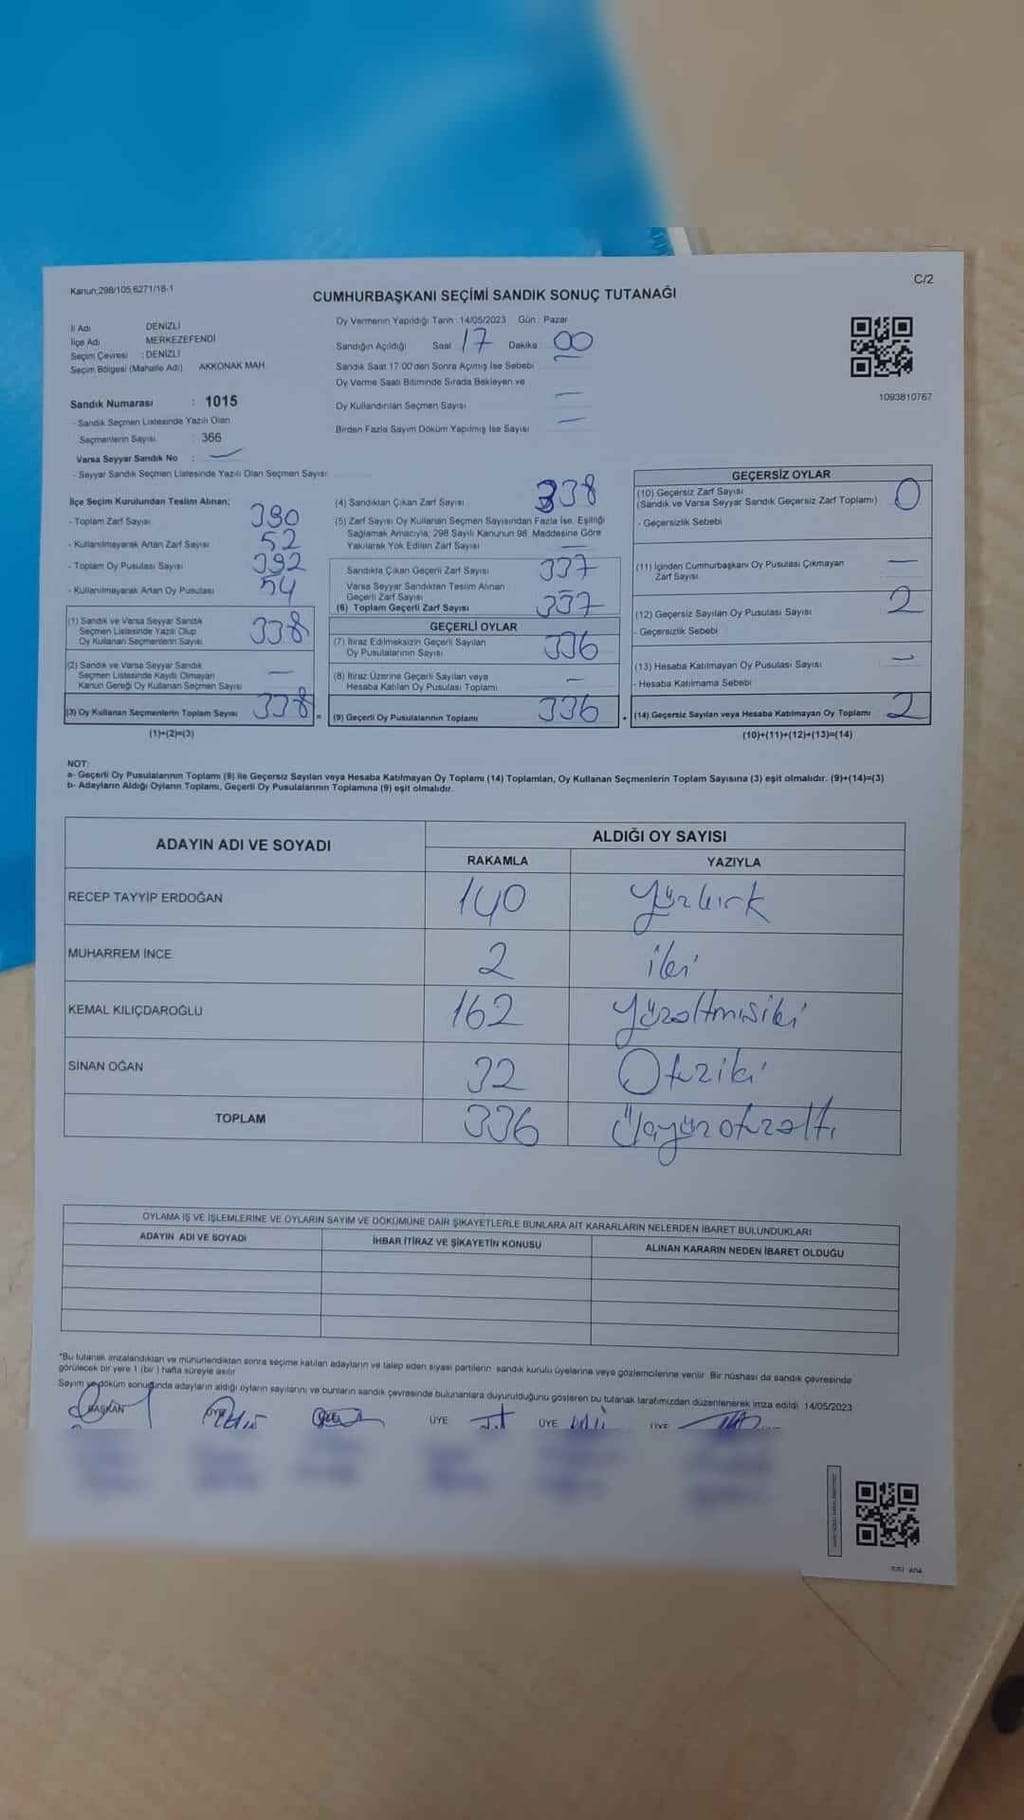 Kanun;298/105,6271/18-1
C/2
CUMHURBAŞKANI SEÇİMİ SANDIK SONUÇ TUTANAĞI
İl Adı DENİZLİ
İlçe Adı MERKEZEFENDİ
Seçim Çevresi : DENİZLİ
Seçim Bölgesi (Mahalle Adı) AKKONAK MAH
Sandık Numarası : 1015
- Sandık Seçmen Listesinde Yazılı Olan
Seçmenlerin Sayısı 366
Varsa Seyyar Sandık No : —
- Seyyar Sandık Seçmen Listesinde Yazılı Olan Seçmen Sayısı
Oy Vermenin Yapıldığı Tarih : 14/05/2023 Gün : Pazar
Sandığın Açıldığı Saat 17 Dakika 00
Sandık Saat 17:00'den Sonra Açılmış İse Sebebi —
Oy Verme Saati Bitiminde Sırada Bekleyen ve
Oy Kullandırılan Seçmen Sayısı —
Birden Fazla Sayım Döküm Yapılmış İse Sayısı —
1093810767
İlçe Seçim Kurulundan Teslim Alınan;
- Toplam Zarf Sayısı 390
- Kullanılmayarak Artan Zarf Sayısı 52
- Toplam Oy Pusulası Sayısı 392
- Kullanılmayarak Artan Oy Pusulası 54
(1) Sandık ve Varsa Seyyar Sandık
Seçmen Listesinde Yazılı Olup
Oy Kullanan Seçmenlerin Sayısı 338
(2) Sandık ve Varsa Seyyar Sandık
Seçmen Listesinde Kayıtlı Olmayan
Kanun Gereği Oy Kullanan Seçmen Sayısı —
(3) Oy Kullanan Seçmenlerin Toplam Sayısı 338
(1)+(2)=(3)
(4) Sandıktan Çıkan Zarf Sayısı 338
(5) Zarf Sayısı Oy Kullanan Seçmen Sayısından Fazla İse, Eşitliği
Sağlamak Amacıyla, 298 Sayılı Kanunun 98. Maddesine Göre
Yakılarak Yok Edilen Zarf Sayısı —
Sandıkta Çıkan Geçerli Zarf Sayısı 337
Varsa Seyyar Sandıktan Teslim Alınan
Geçerli Zarf Sayısı
(6) Toplam Geçerli Zarf Sayısı 337
GEÇERLİ OYLAR
(7) İtiraz Edilmeksizin Geçerli Sayılan
Oy Pusulalarının Sayısı 336
(8) İtiraz Üzerine Geçerli Sayılan veya
Hesaba Katılan Oy Pusulası Toplamı —
(9) Geçerli Oy Pusulalarının Toplamı 336
GEÇERSİZ OYLAR
(10) Geçersiz Zarf Sayısı
(Sandık ve Varsa Seyyar Sandık Geçersiz Zarf Toplamı) 0
- Geçersizlik Sebebi
(11) İçinden Cumhurbaşkanı Oy Pusulası Çıkmayan
Zarf Sayısı —
(12) Geçersiz Sayılan Oy Pusulası Sayısı 2
- Geçersizlik Sebebi
(13) Hesaba Katılmayan Oy Pusulası Sayısı —
- Hesaba Katılmama Sebebi
(14) Geçersiz Sayılan veya Hesaba Katılmayan Oy Toplamı 2
(10)+(11)+(12)+(13)=(14)
NOT:
a- Geçerli Oy Pusulalarının Toplamı (9) ile Geçersiz Sayılan veya Hesaba Katılmayan Oy Toplamı (14) Toplamları, Oy Kullanan Seçmenlerin Toplam Sayısına (3) eşit olmalıdır. (9)+(14)=(3)
b- Adayların Aldığı Oyların Toplamı, Geçerli Oy Pusulalarının Toplamına (9) eşit olmalıdır.
ADAYIN ADI VE SOYADI
ALDIĞI OY SAYISI
RAKAMLA YAZIYLA
RECEP TAYYİP ERDOĞAN 140 Yüzkırk
MUHARREM İNCE 2 iki
KEMAL KILIÇDAROĞLU 162 Yüzaltmışiki
SİNAN OĞAN 32 Otuziki
TOPLAM 336 Üçyüzotuzaltı
OYLAMA İŞ VE İŞLEMLERİNE VE OYLARIN SAYIM VE DÖKÜMÜNE DAİR ŞİKAYETLERLE BUNLARA AİT KARARLARIN NELERDEN İBARET BULUNDUKLARI
ADAYIN ADI VE SOYADI İHBAR İTİRAZ VE ŞİKAYETİN KONUSU ALINAN KARARIN NEDEN İBARET OLDUĞU
*Bu tutanak imzalandıktan ve mühürlendikten sonra seçime katılan adayların ve talep eden siyasi partilerin sandık kurulu üyelerine veya gözlemcilerine verilir. Bir nüshası da sandık çevresinde
görülecek bir yere 1 (bir) hafta süreyle asılır
Sayım ve döküm sonuğunda adayların aldığı oyların sayılarını ve bunların sandık çevresinde bulunanlara duyurulduğunu gösteren bu tutanak tarafımızdan düzenlenerek imza edildi. 14/05/2023
BAŞKAN ÜYE ÜYE ÜYE ÜYE